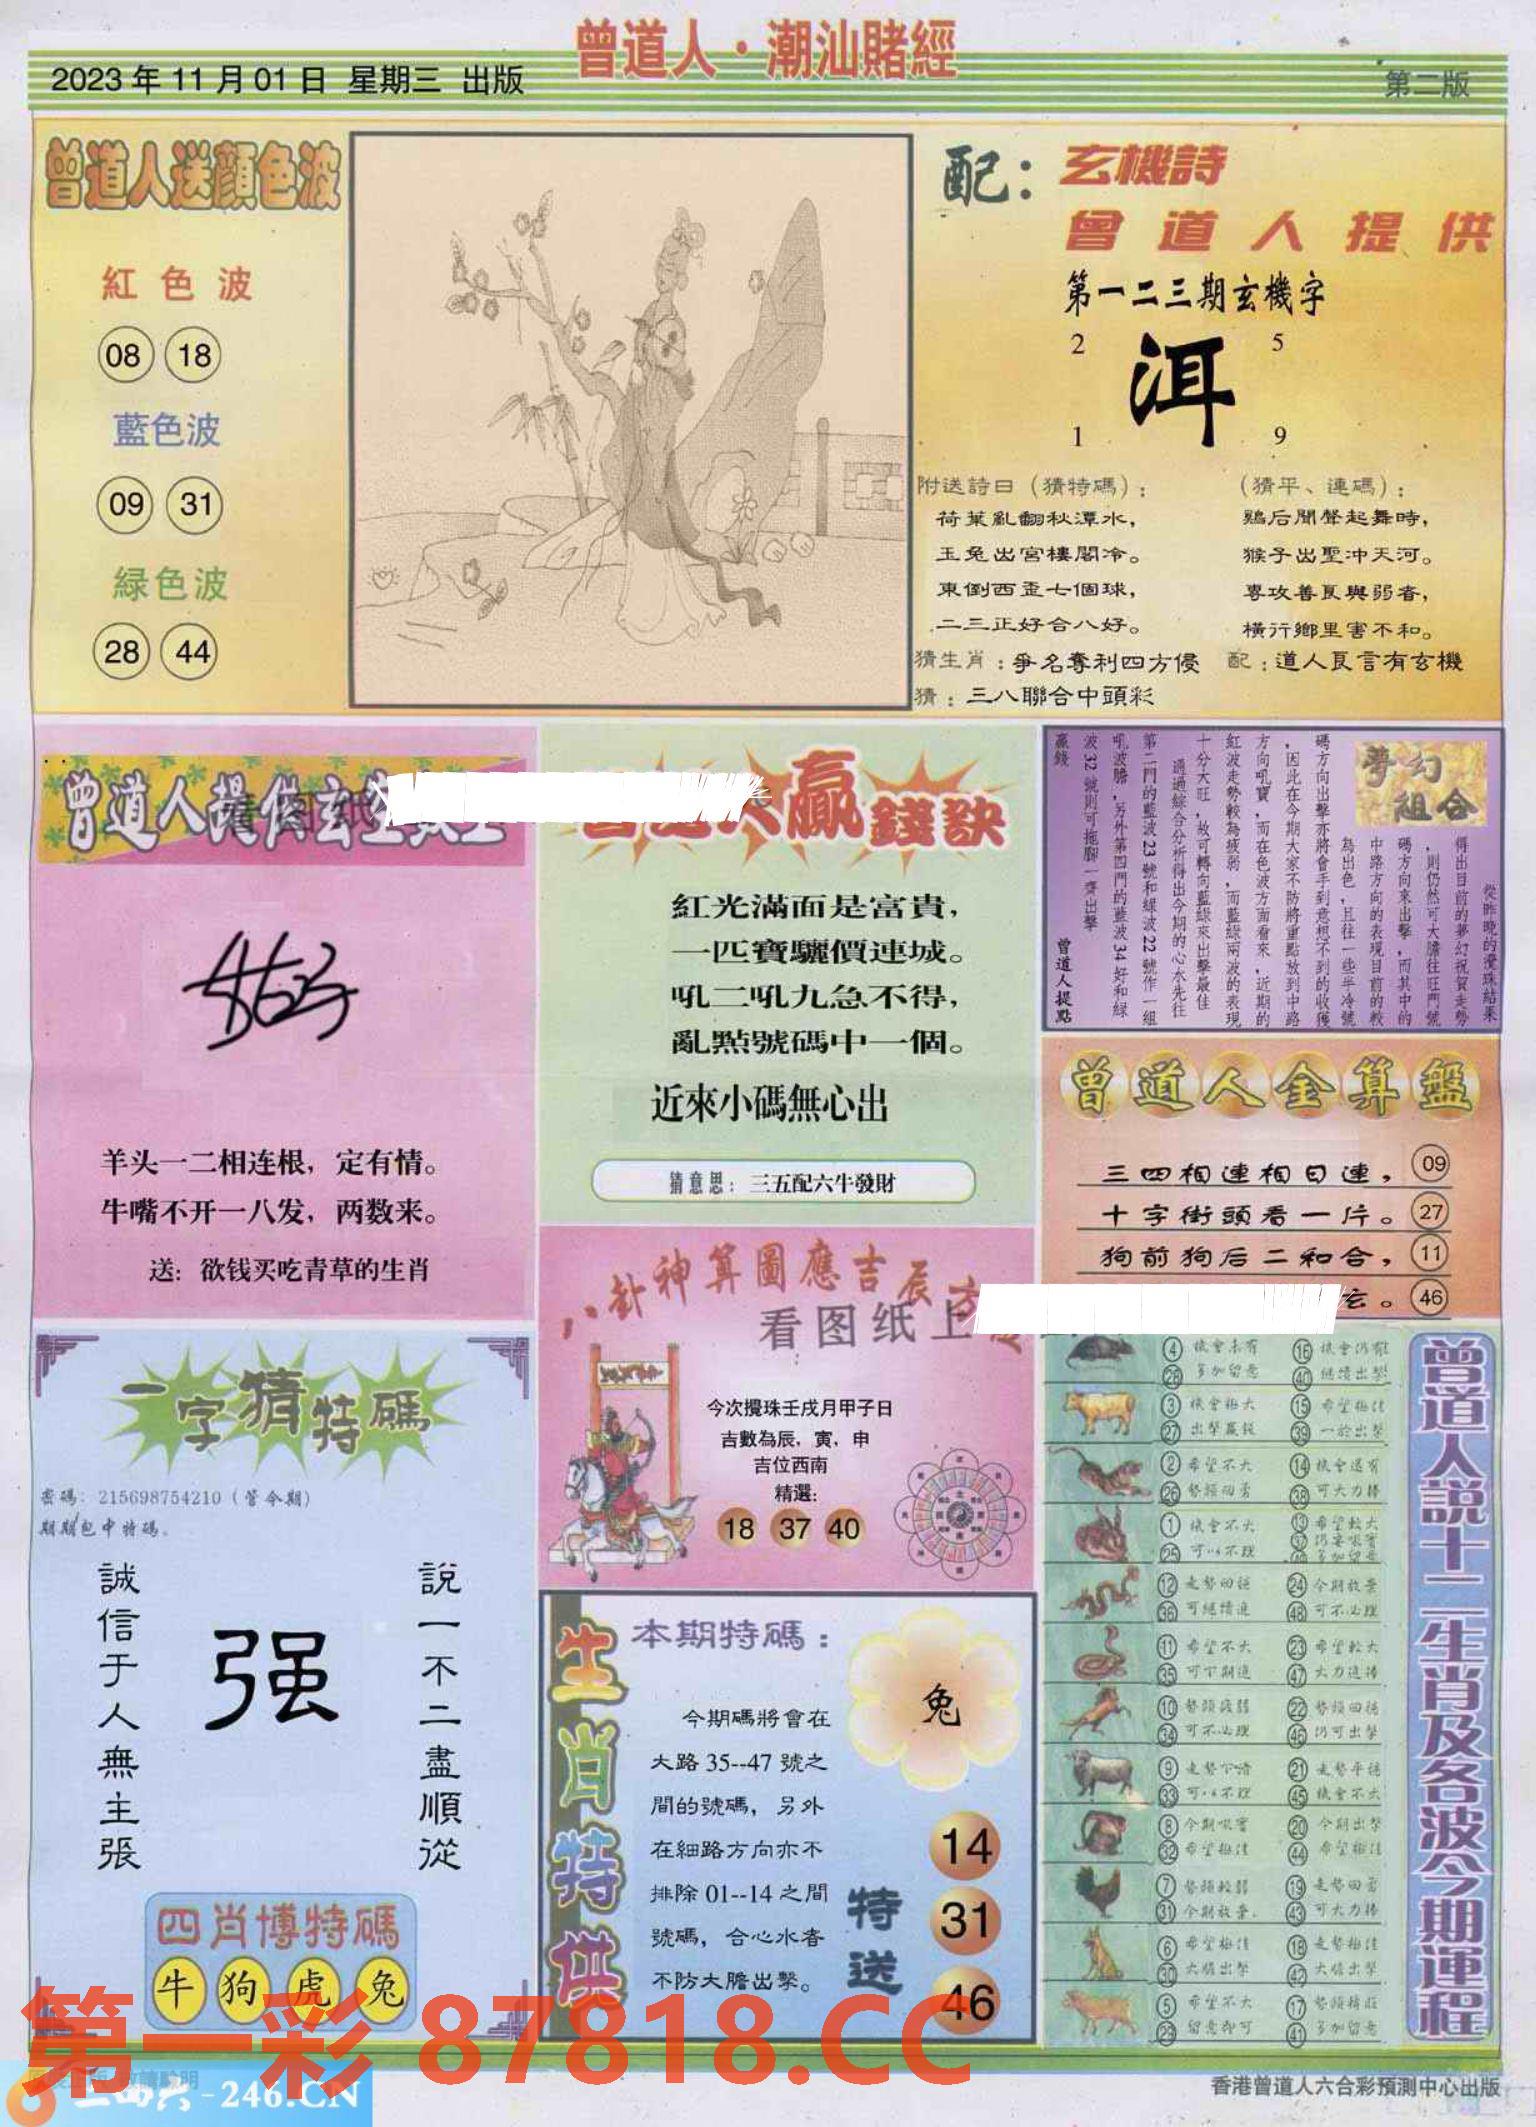 曾道人·潮汕賭經
2023 年 11 月 01 日 星期三 出版
第二版
曾道人送顔色波
紅色波
08 18
藍色波
09 31
緑色波
28 44
配：玄機詩
曾道人提供
第一二三期玄機字
2 5
洱
1 9
附送詩曰（猜特碼）：
荷葉亂翻秋潭水，
玉兔出宮樓閣冷。
東倒西歪七個球，
二三正好合八好。
（猜平、連碼）：
鷄后聞聲起舞時，
猴子出聖冲天河。
專攻善良與弱者，
橫行鄉里害不和。
猜生肖：爭名奪利四方侵 配：道人良言有玄機
猜：三八聯合中頭彩
曾道人提供玄
羊头一二相连根，定有情。
牛嘴不开一八发，两数来。
送：欲钱买吃青草的生肖
贏錢訣
紅光滿面是富貴，
一匹寶驪價連城。
吼二吼九急不得，
亂點號碼中一個。
近來小碼無心出
猜意思：三五配六牛發財
夢幻組合
從昨晚的攪珠結果
得出目前的夢幻祝賀走勢
，則仍然可大膽往旺門號
碼方向來出擊，而其中的
中路方向的表現目前的較
為出色，且往一些半冷號
碼方向出擊亦將會手到意想不到的收獲
，因此在今期大家不防將重點放到中路
方向吼寶，而在色波方面看來，近期的
紅波走勢較為疲弱，而藍綠兩波的表現
十分大旺，故可轉向藍綠來出擊最佳
通過綜合分析得出今期的心水先往
第二門的藍波23號和綠波22號作一組
吼波膽，另外第四門的藍波34好和綠
波32號則可拖腳一齊出擊
贏錢
曾道人提點
曾道人金算盤
三四相連相日連， 09
十字街頭看一片。 27
狗前狗后二和合， 11
玄。 46
八卦神算圖應吉辰方
看图纸上
今次攪珠壬戌月甲子日
吉數為辰，寅，申
吉位西南
精選：
18 37 40
一字猜特碼
密碼：215698754210（管今期）
期期包中特碼。
誠信于人無主張
强
說一不二盡順從
四肖博特碼
牛 狗 虎 兔
生肖特供
本期特碼：
兔
今期碼將會在
大路 35--47 號之
間的號碼，另外
在細路方向亦不
排除 01--14 之間
號碼，合心水者
不防大膽出擊。
特送
14
31
46
曾道人説十二生肖及各波今期運程
4 機會未有 16 機會仍有
28 多加留意 40 繼續出擊
3 機會極大 15 希望極佳
27 出擊贏錢 39 一於出擊
2 希望不大 14 機會還有
26 勢頭回勇 38 可大力捧
1 機會不大 13 希望較大
25 可以不理
12 走勢回穩 24 今期放棄
36 可繼續追 48 可不必理
11 希望不大 23 希望較大
35 可下期追 47 大力追捧
10 勢頭疲弱 22 勢頭回穩
34 可不必理 46 仍可出擊
9 走勢下滑 21 走勢平穩
33 可以不理 45 機會不大
8 今期吼實 20 今期出擊
32 希望極佳 44 希望極佳
7 勢頭較弱 19 走勢回勇
31 今期放棄. 43 可大力捧
6 希望極佳 18 走勢極佳
30 大膽出擊 42 大膽出擊
5 希望不大 17 勢頭精旺
29 留意即可 41 多加留意
第一彩 87818.CC
二四六-246.CN
香港曾道人六合彩預測中心出版